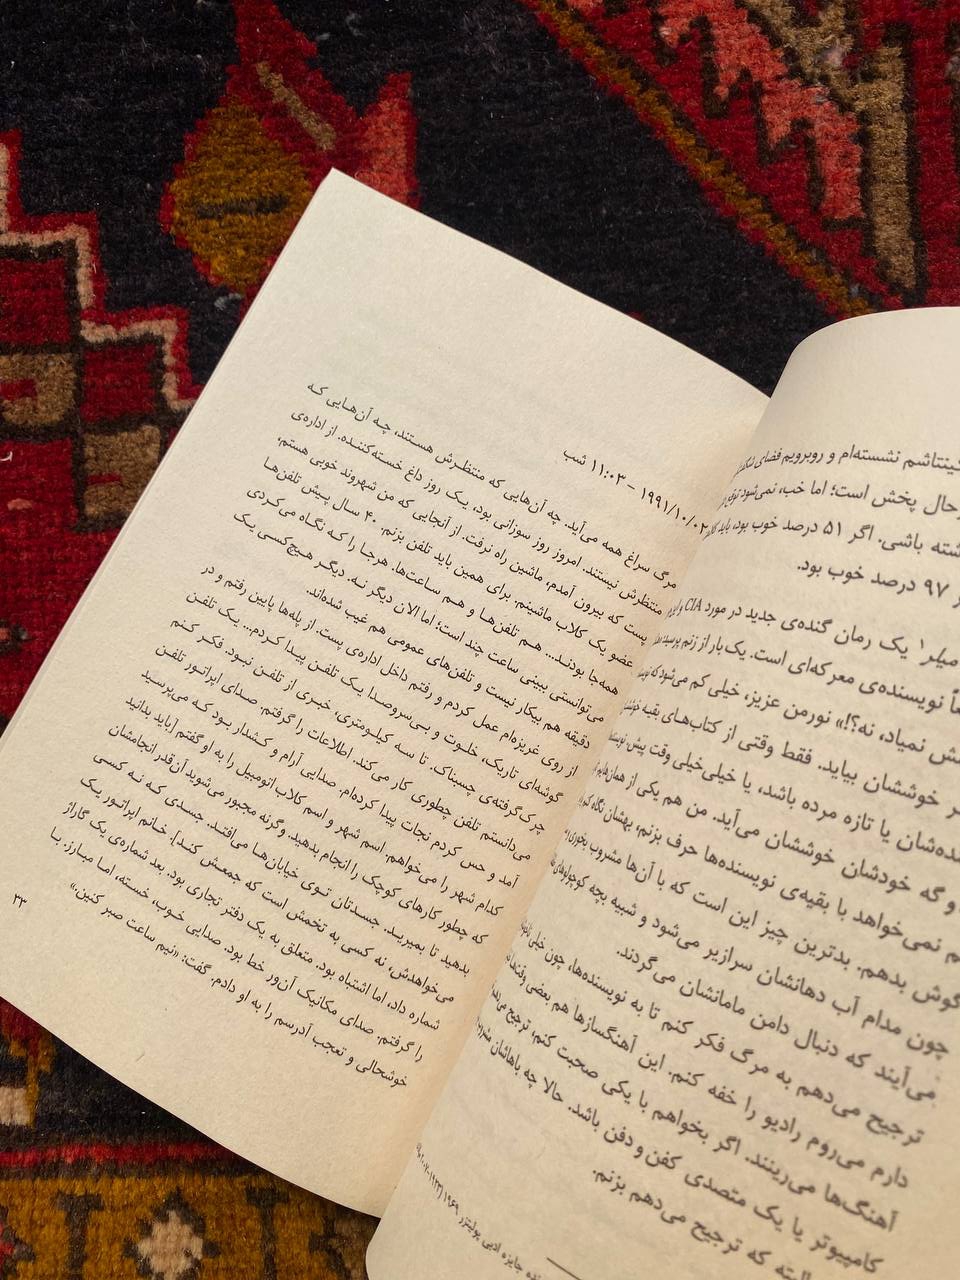 نشسته‌ام و روبرویم فضای
حال پخش است؛ اما خب، نمی‌شود توقع
باشی. اگر ۵۱ درصد خوب بود، باید
۹۷ درصد خوب بود.
میلر۱ یک رمان گنده‌ی جدید در مورد CIA
نویسنده‌ی معرکه‌ای است. یک بار از زنم پرسید
نمیاد، نه؟!» نورمن عزیز، خیلی کم می‌شود که
خوششان بیاید. فقط وقتی از کتاب‌های بقیه
یا تازه مرده باشد، یا خیلی‌خیلی وقت پیش
و گه خودشان خوششان می‌آید. من هم یکی از
نمی‌خواهد با بقیه‌ی نویسنده‌ها حرف بزنم، بهشان نگاه
گوش بدهم. بدترین چیز این است که با آن‌ها مشروب بخوری،
چون مدام آب دهانشان سرازیر می‌شود و شبیه بچه
می‌آیند که دنبال دامن مامانشان می‌گردند.
ترجیح می‌دهم به مرگ فکر کنم تا به نویسنده‌ها، چون خیلی
دارم می‌روم رادیو را خفه کنم. این آهنگسازها هم بعضی وقت‌ها
آهنگ‌ها می‌رینند. اگر بخواهم با یکی صحبت کنم، ترجیح
کامپیوتر یا یک متصدی کفن و دفن باشد. حالا چه باهاشان
که ترجیح می‌دهم بزنم.
جایزه ادبی پولیتزر ۱۹۶۹
۱۹۹۱/۱۰/۰۲ – ۱۱:۰۳ شب
مرگ سراغ همه می‌آید. چه آن‌هایی که منتظرش هستند، چه آن‌هایی که
منتظرش نیستند. امروز روز سوزانی بود، یک روز داغ خسته‌کننده. از اداره‌ی
پست که بیرون آمدم، ماشین راه نرفت. از آنجایی که من شهروند خوبی هستم،
عضو یک کلاب ماشینم. برای همین باید تلفن بزنم. ۴۰ سال پیش تلفن‌ها
همه‌جا بودند... هم تلفن‌ها و هم ساعت‌ها. هرجا را که نگاه می‌کردی
می‌توانستی ببینی ساعت چند است؛ اما الان دیگر نه. دیگر هیچ‌کسی یک
دقیقه هم بیکار نیست و تلفن‌های عمومی هم غیب شده‌اند.
از روی غریزه‌ام عمل کردم و رفتم داخل اداره‌ی پست. از پله‌ها پایین رفتم و در
گوشه‌ای تاریک، خلوت و بی‌سروصدا یک تلفن پیدا کردم... یک تلفن
چرک‌گرفته‌ی چسبناک. تا سه کیلومتری، خبری از تلفن نبود. فکر کنم
می‌دانستم تلفن چطوری کار می‌کند. اطلاعات را گرفتم. صدای اپراتور تلفن
آمد و حس کردم نجات پیدا کرده‌ام. صدایی آرام و کشدار بود که می‌پرسید
کدام شهر را می‌خواهم. اسم شهر و اسم کلاب اتومبیل را به او گفتم [باید بدانید
که چطور کارهای کوچک را انجام بدهید. وگرنه مجبور می‌شوید آن‌قدر انجامشان
بدهید تا بمیرید. جسدتان توی خیابان‌ها می‌افتد. جسدی که نه کسی
می‌خواهدش، نه کسی به تخمش است که جمعش کند]. خانم اپراتور یک
شماره داد، اما اشتباه بود. متعلق به یک دفتر تجاری بود. بعد شماره‌ی یک گاراژ
را گرفتم. صدای مکانیک آن‌ور خط بود. صدایی خوب، خسته، اما مبارز. با
خوشحالی و تعجب آدرسم را به او دادم. گفت: «نیم ساعت صبر کنین.»
۳۳